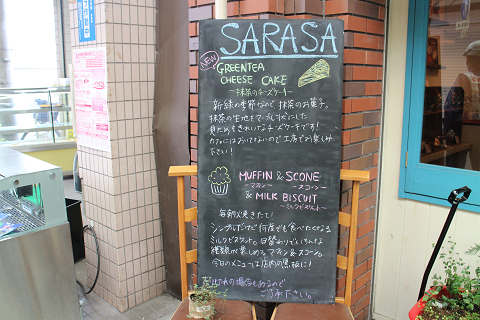 SARASA
NEW
GREENTEA
CHEESE CAKE
抹茶のチーズケーキ
新緑の季節なので、抹茶のお菓子。
抹茶の生地をマーブル状にした
見ためもきれいなチーズケーキです!
カフェにはおいてないので工房でお楽しみ
下さい!
MUFFIN & SCONE
〜マフィン〜 〜スコーン〜
& MILK BISCUIT
〜ミルクビスケット〜
毎朝焼きたて!
シンプルだけど何度でも食べたくなる
ミルクビスケット。日替わりでいろいろな
種類が楽しめるマフィン&スコーン。
今日のメニューは店内の黒板に!
売り切れの場合もあるので
ご了承下さい。